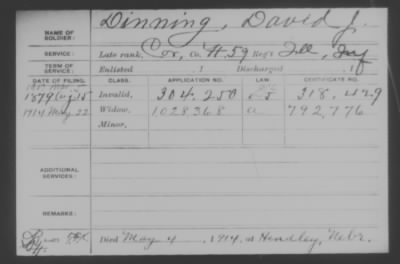 NAME OF SOLDIER: Dinning, David J.
SERVICE: Late rank, Cor, Co. H. 59 Reg't Ill, Inf
TERM OF SERVICE: Enlisted 1 Discharged 1
DATE OF FILING. CLASS. APPLICATION NO. LAW CERTIFICATE NO.
1879 Aug 15 Invalid, 304.250 318.429
1914 May 22 Widow, 1028368 a 792,776
Minor,
ADDITIONAL SERVICES:
REMARKS:
Died May 4, 1914, at Hendley, Nebr.